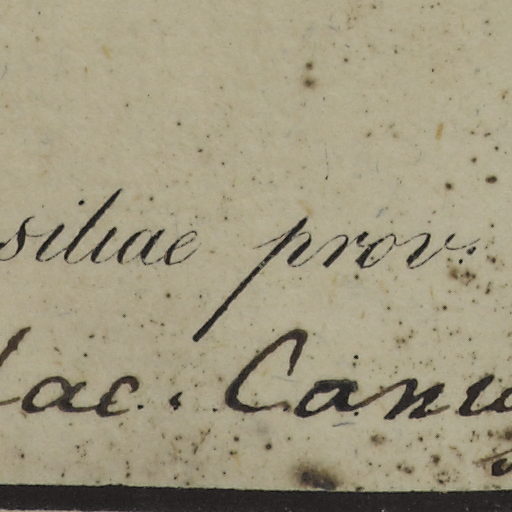 siliae prov.
lac. Canu